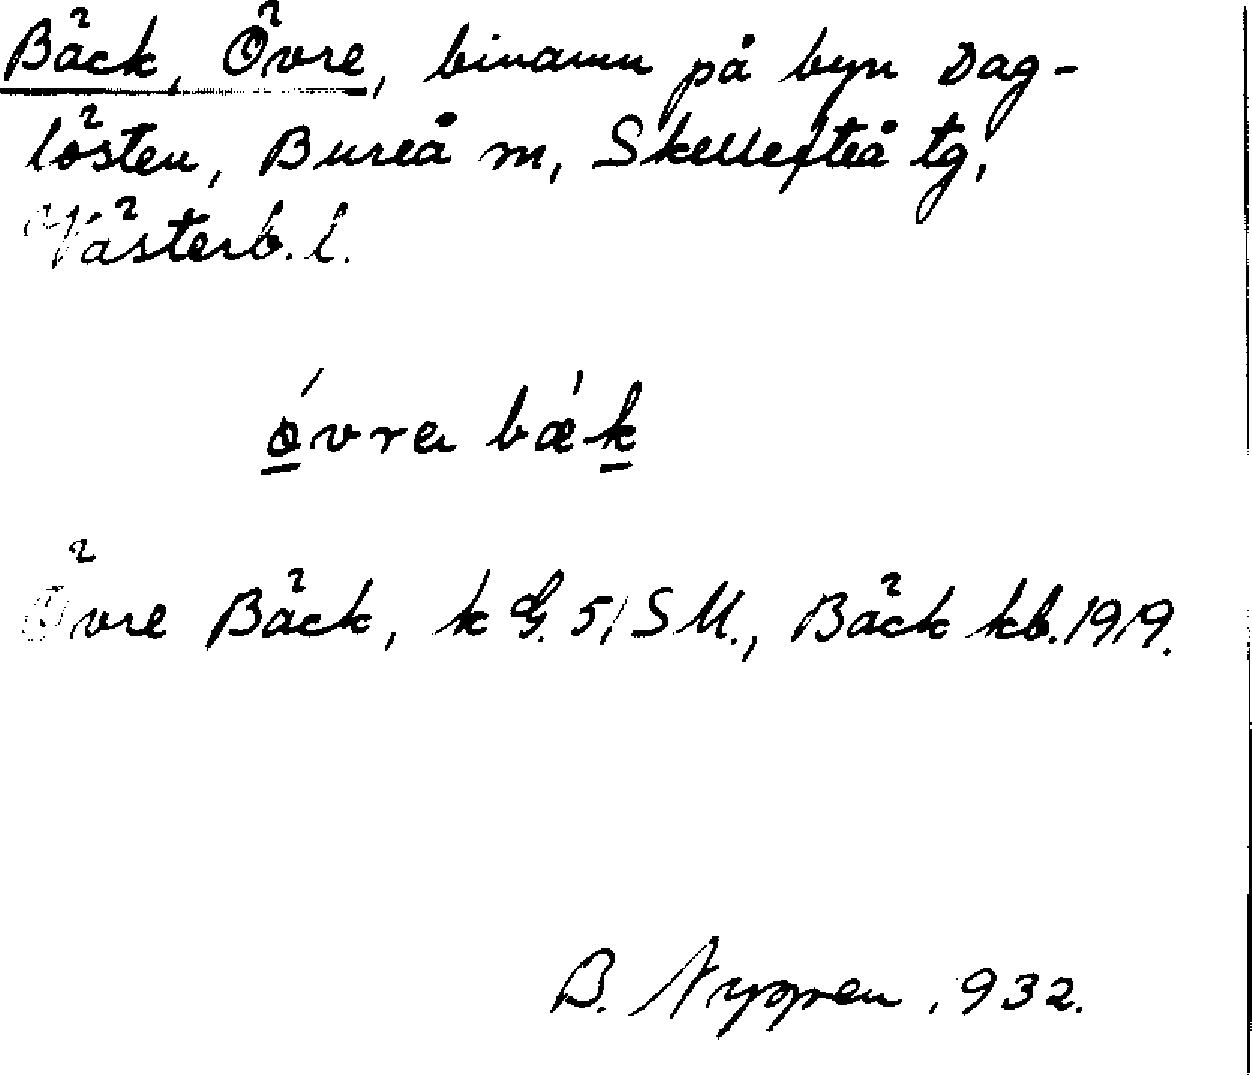 Bäck, Övre, binamn på byn Dag-
lösten, Bureå m, Skellefteå tg,
Västerb. l.
övra bæk
Övre Bäck, k G. 51 SM., Bäck kb. 1919.
B. Nyppen, 932.